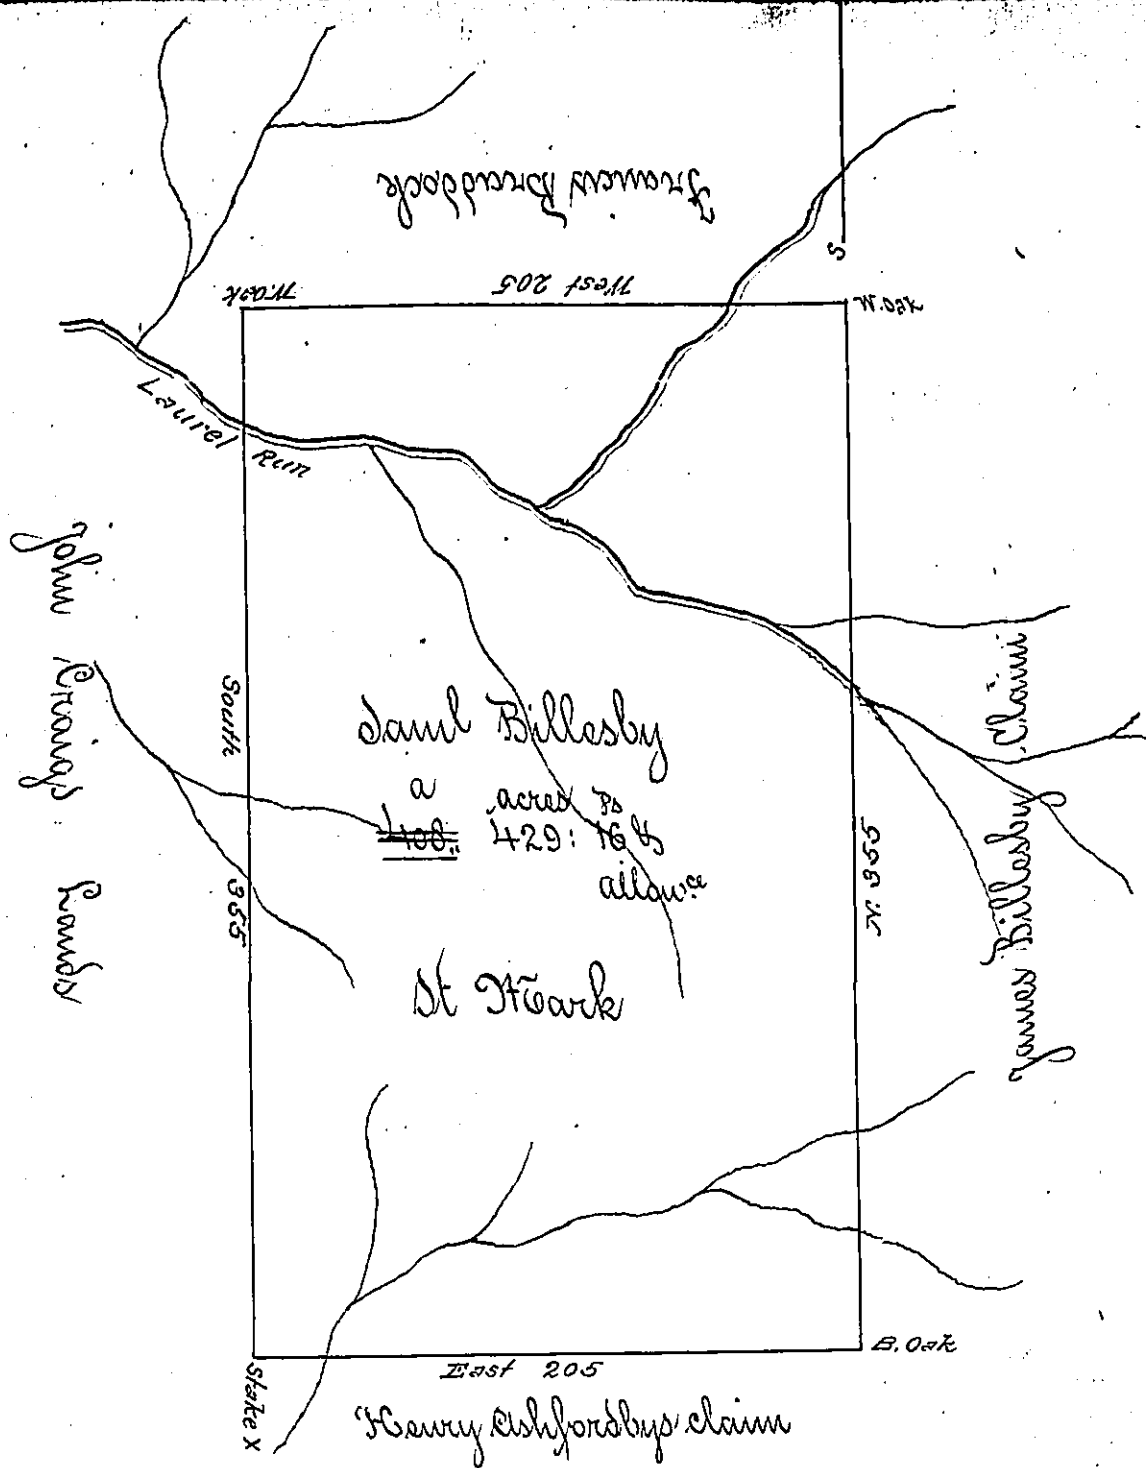 Francis Braddock
West 205
W.oak
W.oak
S
Laurel Run
John Craigs Lands
South 355
Saml Billesby
a acres ps
408" 429: 16 &
allowce
St Mark
N. 355
James Billesby Claim
B. Oak
East 205
Stake X
Henry Ashfordbys claim